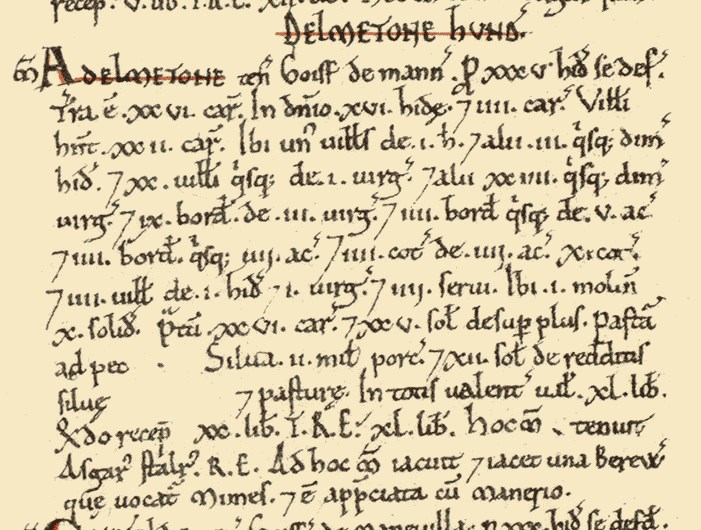 recep̄. v. lib. T.R.E.
DELMETONE HUND̄.
m̄ ADELMETONE ten̄ Goisf de mann̄. p xxxv. hid̄ se def̄.
Tr̄a ē .xxvi. car̄. In dn̄io .xvi. hidę. ⁊ iiii. car̄. Villi
hn̄t .xxii. car̄. Ibi un̄ uills de .i. h. ⁊ alii .iii. q̄sq; dim̄
hid̄. ⁊ xx. uilli q̄sq; de .i. uirḡ. ⁊ alii xxiiii. q̄sq; dim̄
uirḡ. ⁊ ix. bord̄. de .iii. uirḡ. ⁊ iiii. bord̄ q̄sq; de. v. ac̄
⁊ iiii. bord̄. q̄sq; iiij. ac̄. ⁊ iiii. cot̄ de .iiij. ac̄. x. cot̄.
⁊ iiii. uill̄ de .i. hid̄ ⁊ .i. uirḡ. ⁊ iiij. serui. Ibi .i. molin̄
x. solid̄. p̄tū .xxvi. car̄. ⁊ xxv. sol̄ de sup plus. Pastā
ad pec̄ . Silua .ii. mil̄ porc̄. ⁊ xii. sol̄ de redditis
siluę ⁊ pasturę. In totis ualent̄ ual̄. xl. lib̄.
Qdo recep̄ xx. lib̄. T.R.E. xl. lib̄. Hoc m̄ tenuit
Asgar̄ stalr̄. R.E. Ad hoc m̄ iacuit ⁊ iacet una Berew̄
que uocat̄ Mimes. ⁊ ē app̄ciata cū Manerio.
de Manguilla. p xxx. hid̄ se defd̄.